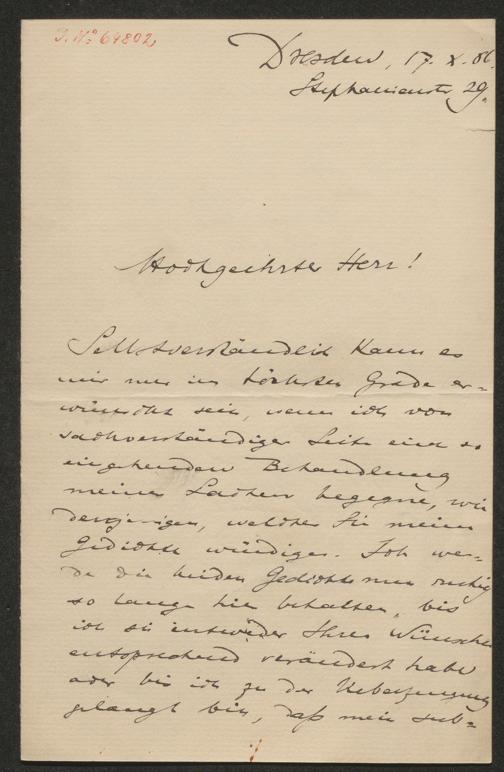 J. No: 64802
Dresden, 17. X. 86.
Stephanienstr 29.
Hochgeehrter Herr!
Selbstverständlich kann es
mir nur im höchsten Grade er=
wünscht sein, wenn ich von
sachverständiger Seite einer so
eingehenden Behandlung
meiner Sachen begegne, wie
derjenigen, welcher Sie meine
Gedichte würdigen. Ich wer=
de die beiden Gedichte nun ruhig
so lange hier behalten, bis
ich sie entweder Ihren Wünschen
entsprechend verändert habe
oder bis ich zu der Ueberzeugung
gelangt bin, daß mein sub=